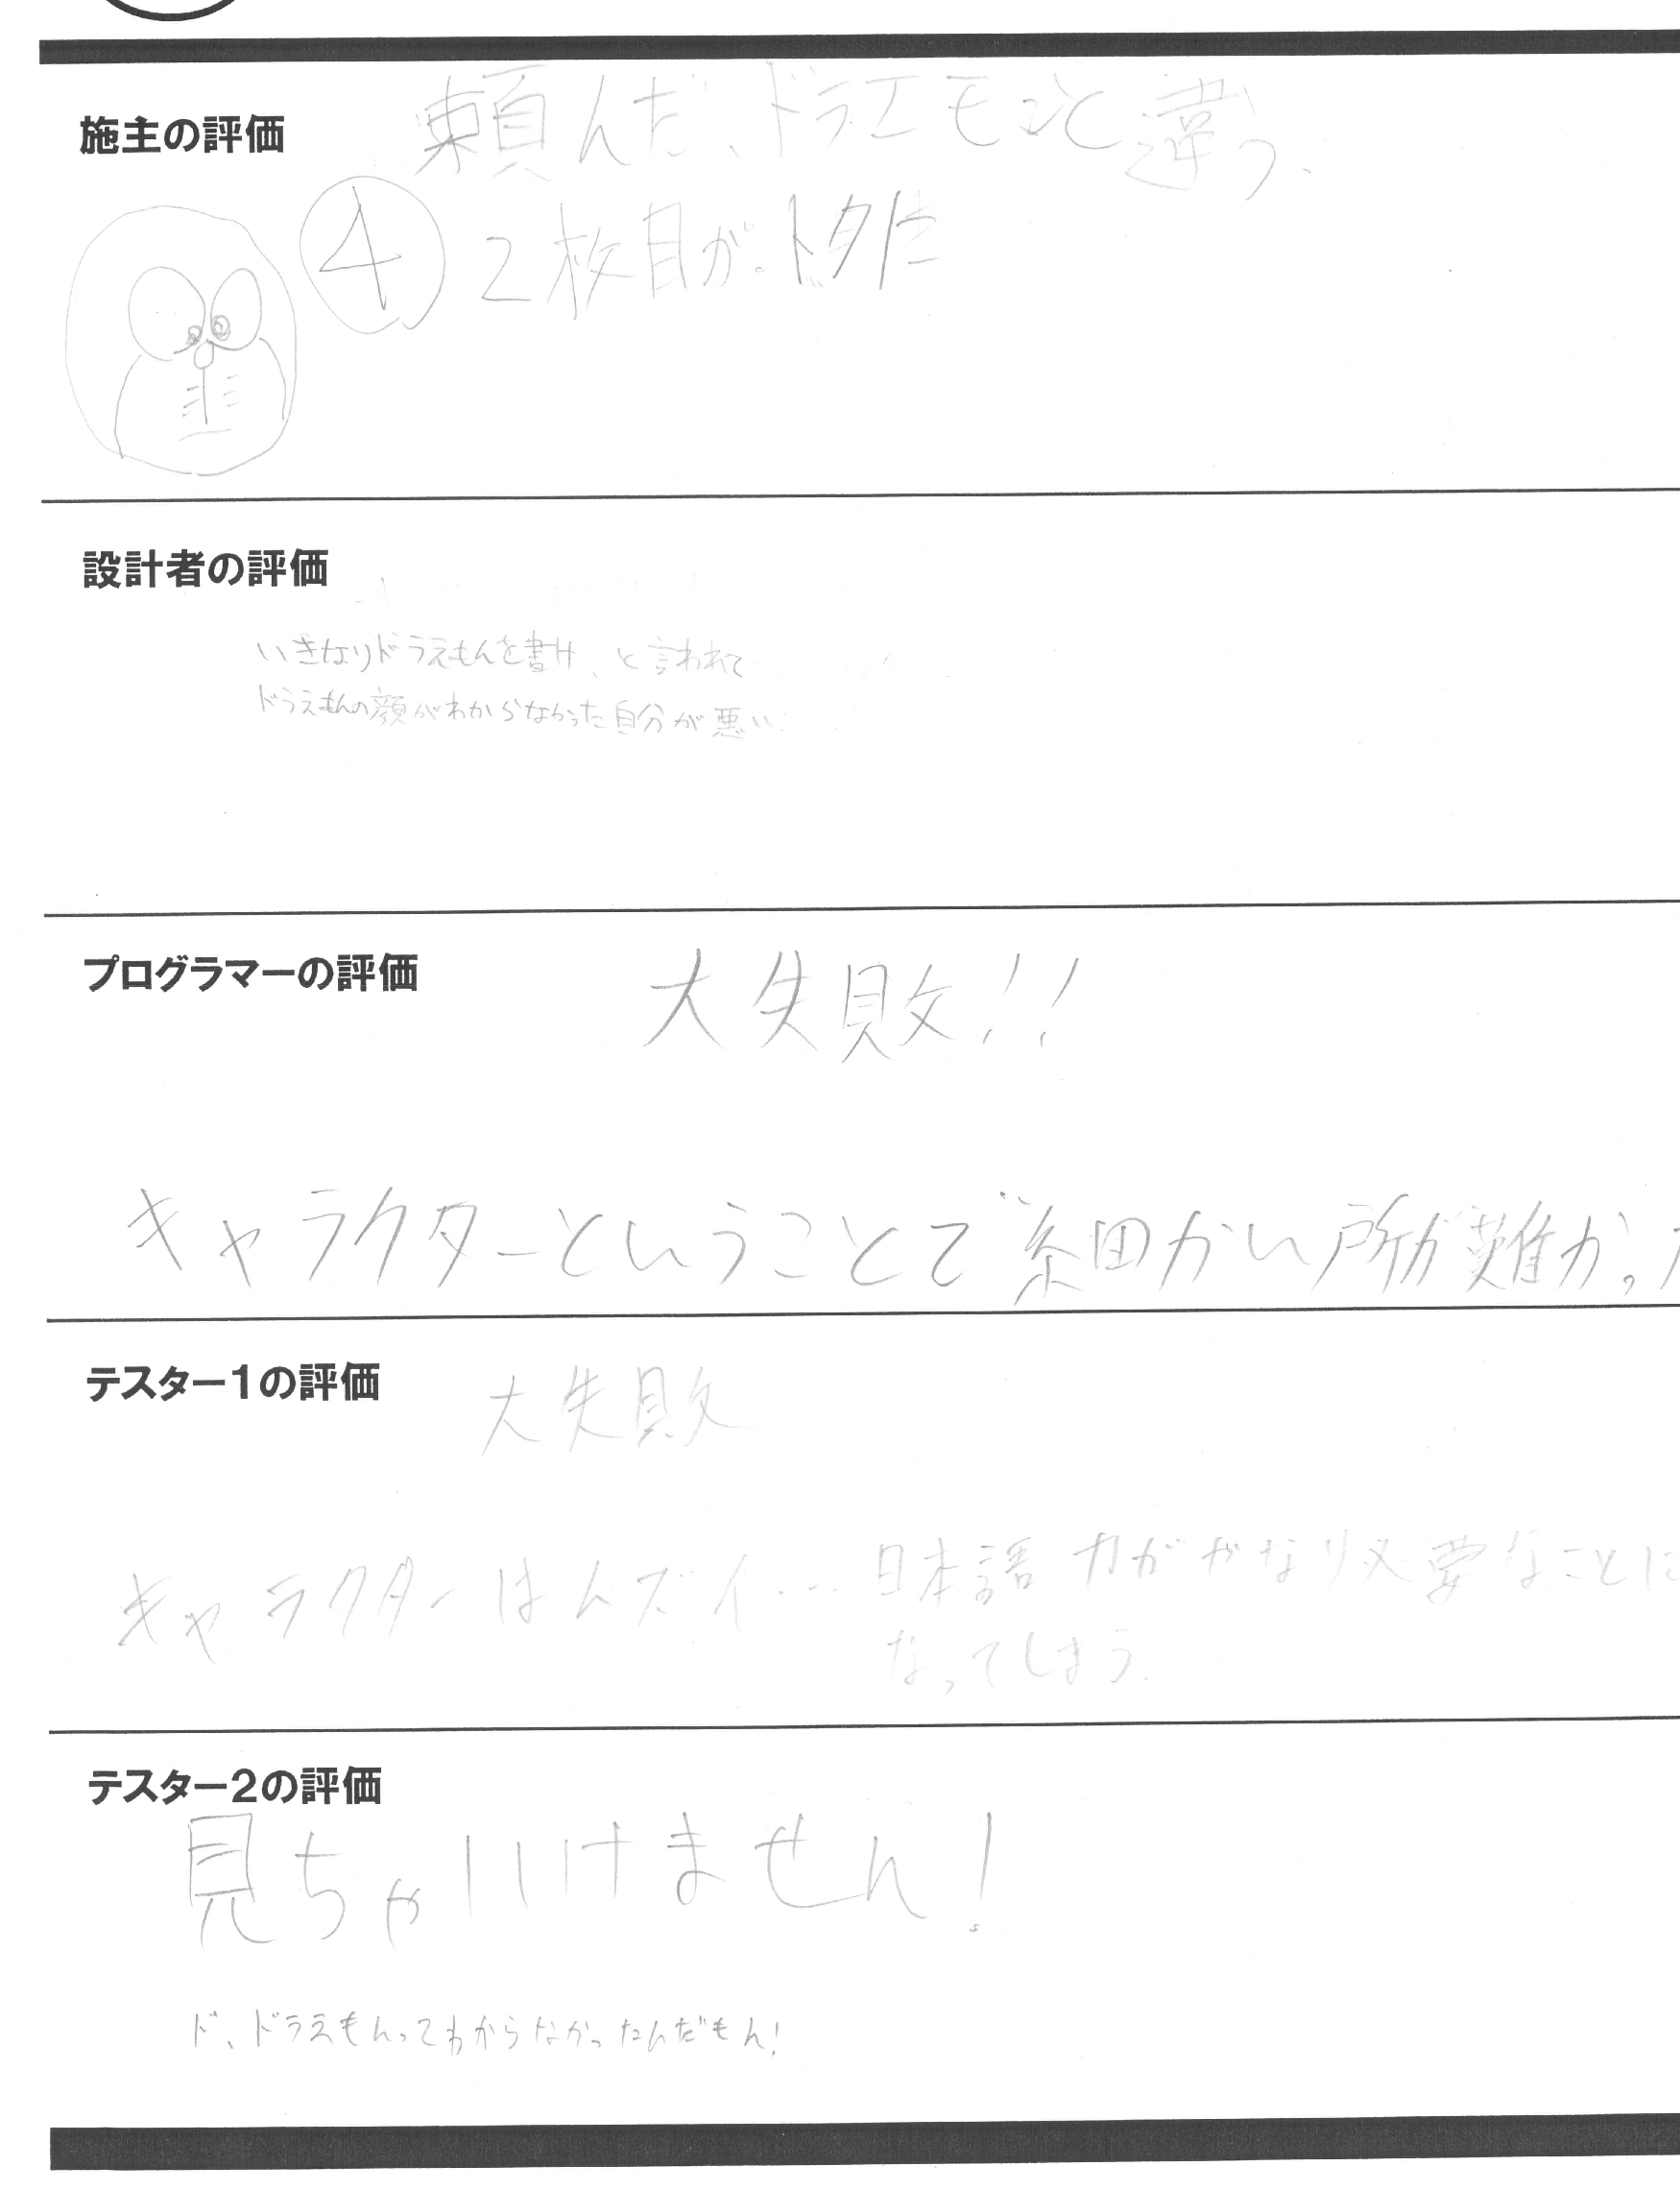 施主の評価
頼んだ、ドラエモンと違う.
④ 2枚目が.
設計者の評価
いきなりドラえもんを書け、と言われて
ドラえもんの顔がわからなかった自分が悪い.
プログラマーの評価
大失敗!!
キャラクターということで細かい所が難かった
テスター1の評価
大失敗
キャラクターはムズイ... 日本語力がかなり必要なことに
なってしまう.
テスター2の評価
見ちゃいけません!
ド、ドラえもんってわからなかったんだもん!